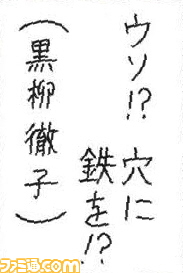 ウソ!? 穴に
鉄を!?
(黒柳徹子)
ファミ通.com